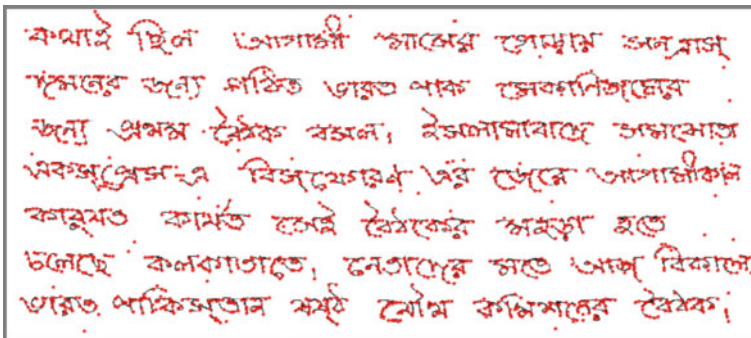 কথাই ছিল আগামী মাসের গোড়ায় সন্ত্রাস্
দমনের জন্যে গঠিত ভারত পাক মেকানিজমের
জন্যে প্রথম বৈঠক বসল। ইসলামাবাদে সমঝোতা
এক্সপ্রেস-এ বিস্ফোরণ এর জেরে আগামীকাল
কার্যত সেই বৈঠকের মহড়া হতে
চলেছে কলকাতাতে, নেতাদের মতে আজ বিকালে
ভারত পাকিস্তান ষষ্ঠ যৌথ কমিশনের বৈঠক।